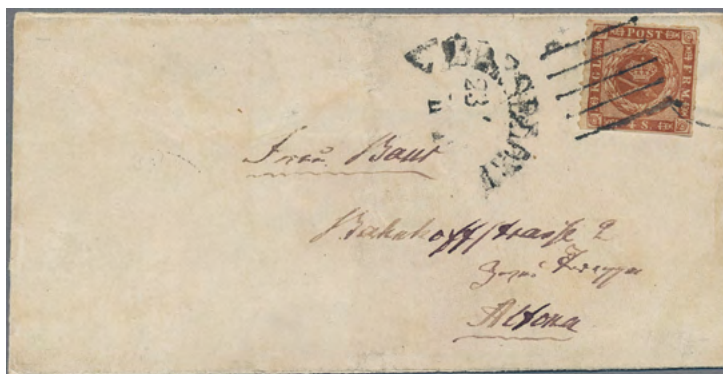 KGL POST FRM
4 S.
23
Frau Baur
Bahnhoffstrasse 2
Zwei Treppen
Altona